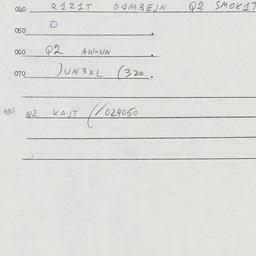 060 R1Z1T DAMBEJN Q2 SMOK1T
050 D.
060 Q2 AW-UN.
070 )UN3XL (320.
080 Q2 KAJT (/024050